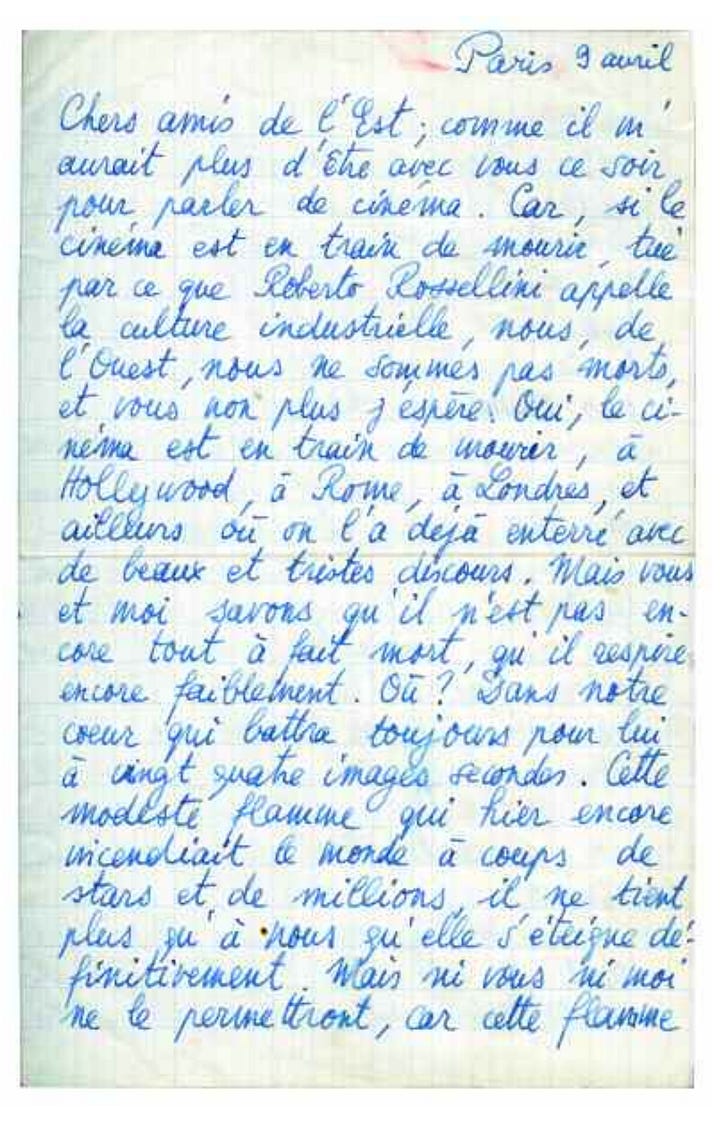 Paris 9 avril
Chers amis de l'Est ; comme il m'
aurait plus d'être avec vous ce soir
pour parler de cinéma. Car, si le
cinéma est en train de mourir, tué
par ce que Roberto Rossellini appelle
la culture industrielle, nous, de
l'Ouest, nous ne sommes pas morts,
et vous non plus j'espère. Oui, le ci-
néma est en train de mourir, à
Hollywood, à Rome, à Londres, et
ailleurs où on l'a déjà enterré avec
de beaux et tristes discours. Mais vous
et moi savons qu'il n'est pas en-
core tout à fait mort, qu'il respire
encore faiblement. Où ? Dans notre
coeur qui battra toujours pour lui
à vingt quatre images secondes. Cette
modeste flamme qui hier encore
incendiait le monde à coups de
stars et de millions, il ne tient
plus qu'à nous qu'elle s'éteigne dé-
finitivement. Mais ni vous ni moi
ne le permettront, car cette flamme